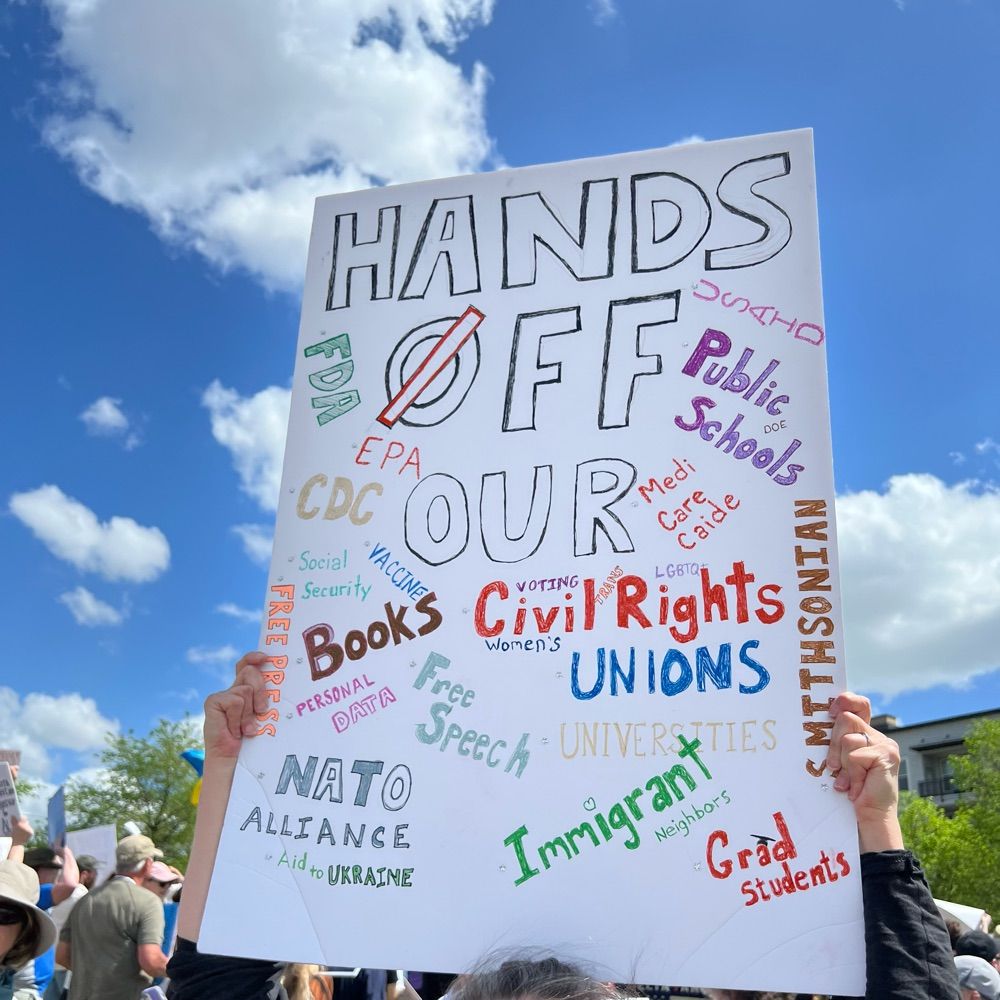 HANDS
OFF
OUR
USAID
FDA
Public
Schools
DOE
EPA
CDC
Medi
Care
Caide
Social
Security
VACCINE
VOTING
TRANS
LGBTQ+
Civil Rights
Women's
FREE PRESS
Books
UNIONS
SMITHSONIAN
PERSONAL
DATA
Free
Speech
UNIVERSITIES
NATO
ALLIANCE
Aid to UKRAINE
Immigrant
Neighbors
Grad
Students